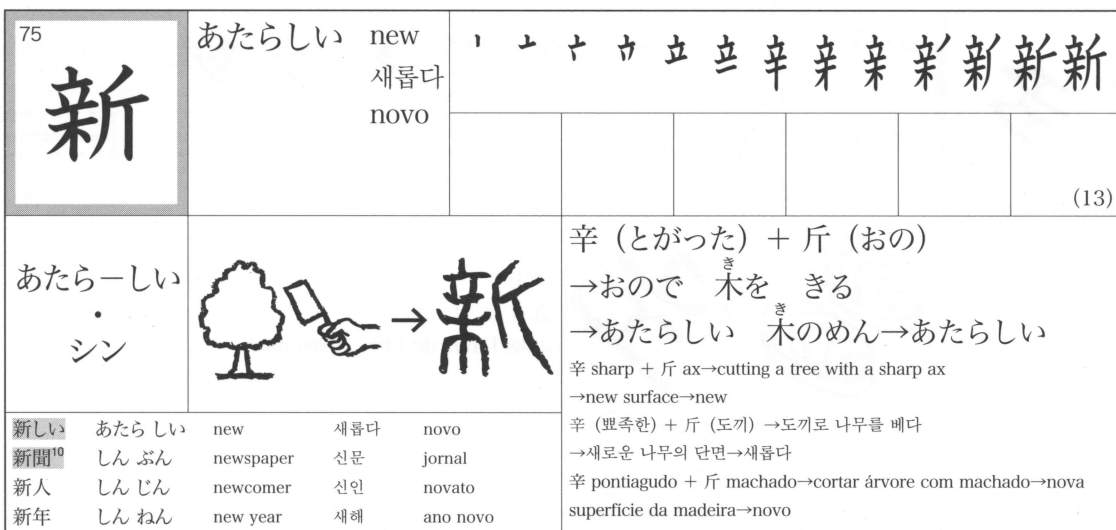 75
新
あたらしい new
새롭다
novo
(13)
あたらーしい
・
シン
→ 新
辛（とがった）＋ 斤（おの）
→おので 木を きる
き
→あたらしい 木のめん→あたらしい
き
辛 sharp + 斤 ax→cutting a tree with a sharp ax
→new surface→new
辛（뾰족한）+ 斤（도끼）→도끼로 나무를 베다
→새로운 나무의 단면→새롭다
辛 pontiagudo + 斤 machado→cortar árvore com machado→nova
superfície da madeira→novo
新しい あたら しい new 새롭다 novo
新聞10 しん ぶん newspaper 신문 jornal
新人 しん じん newcomer 신인 novato
新年 しん ねん new year 새해 ano novo